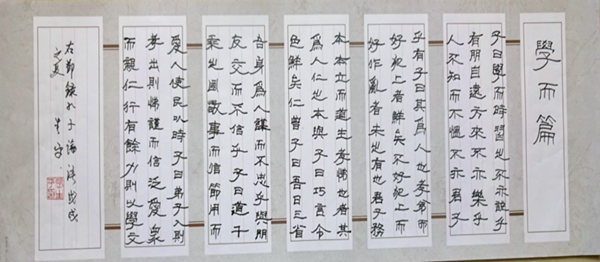 學而篇
子曰學而時習之不亦說乎
有朋自遠方來不亦樂乎
人不知而不慍不亦君子
乎有子曰其為人也孝弟而
好犯上者鮮矣不好犯上而
好作亂者未之有也君子務
本本立而道生孝悌也者其
為人仁之本與子曰巧言令
色鮮矣仁曾子曰吾日三省
吾身為人謀而不忠乎與朋
友交而不信乎子曰道千
乘之國敬事而信節用而
愛人使民以時子曰弟子入則
孝出則悌謹而信泛愛眾
而親仁行有餘力則以學文
右節錄孔子論語戊戌
之夏